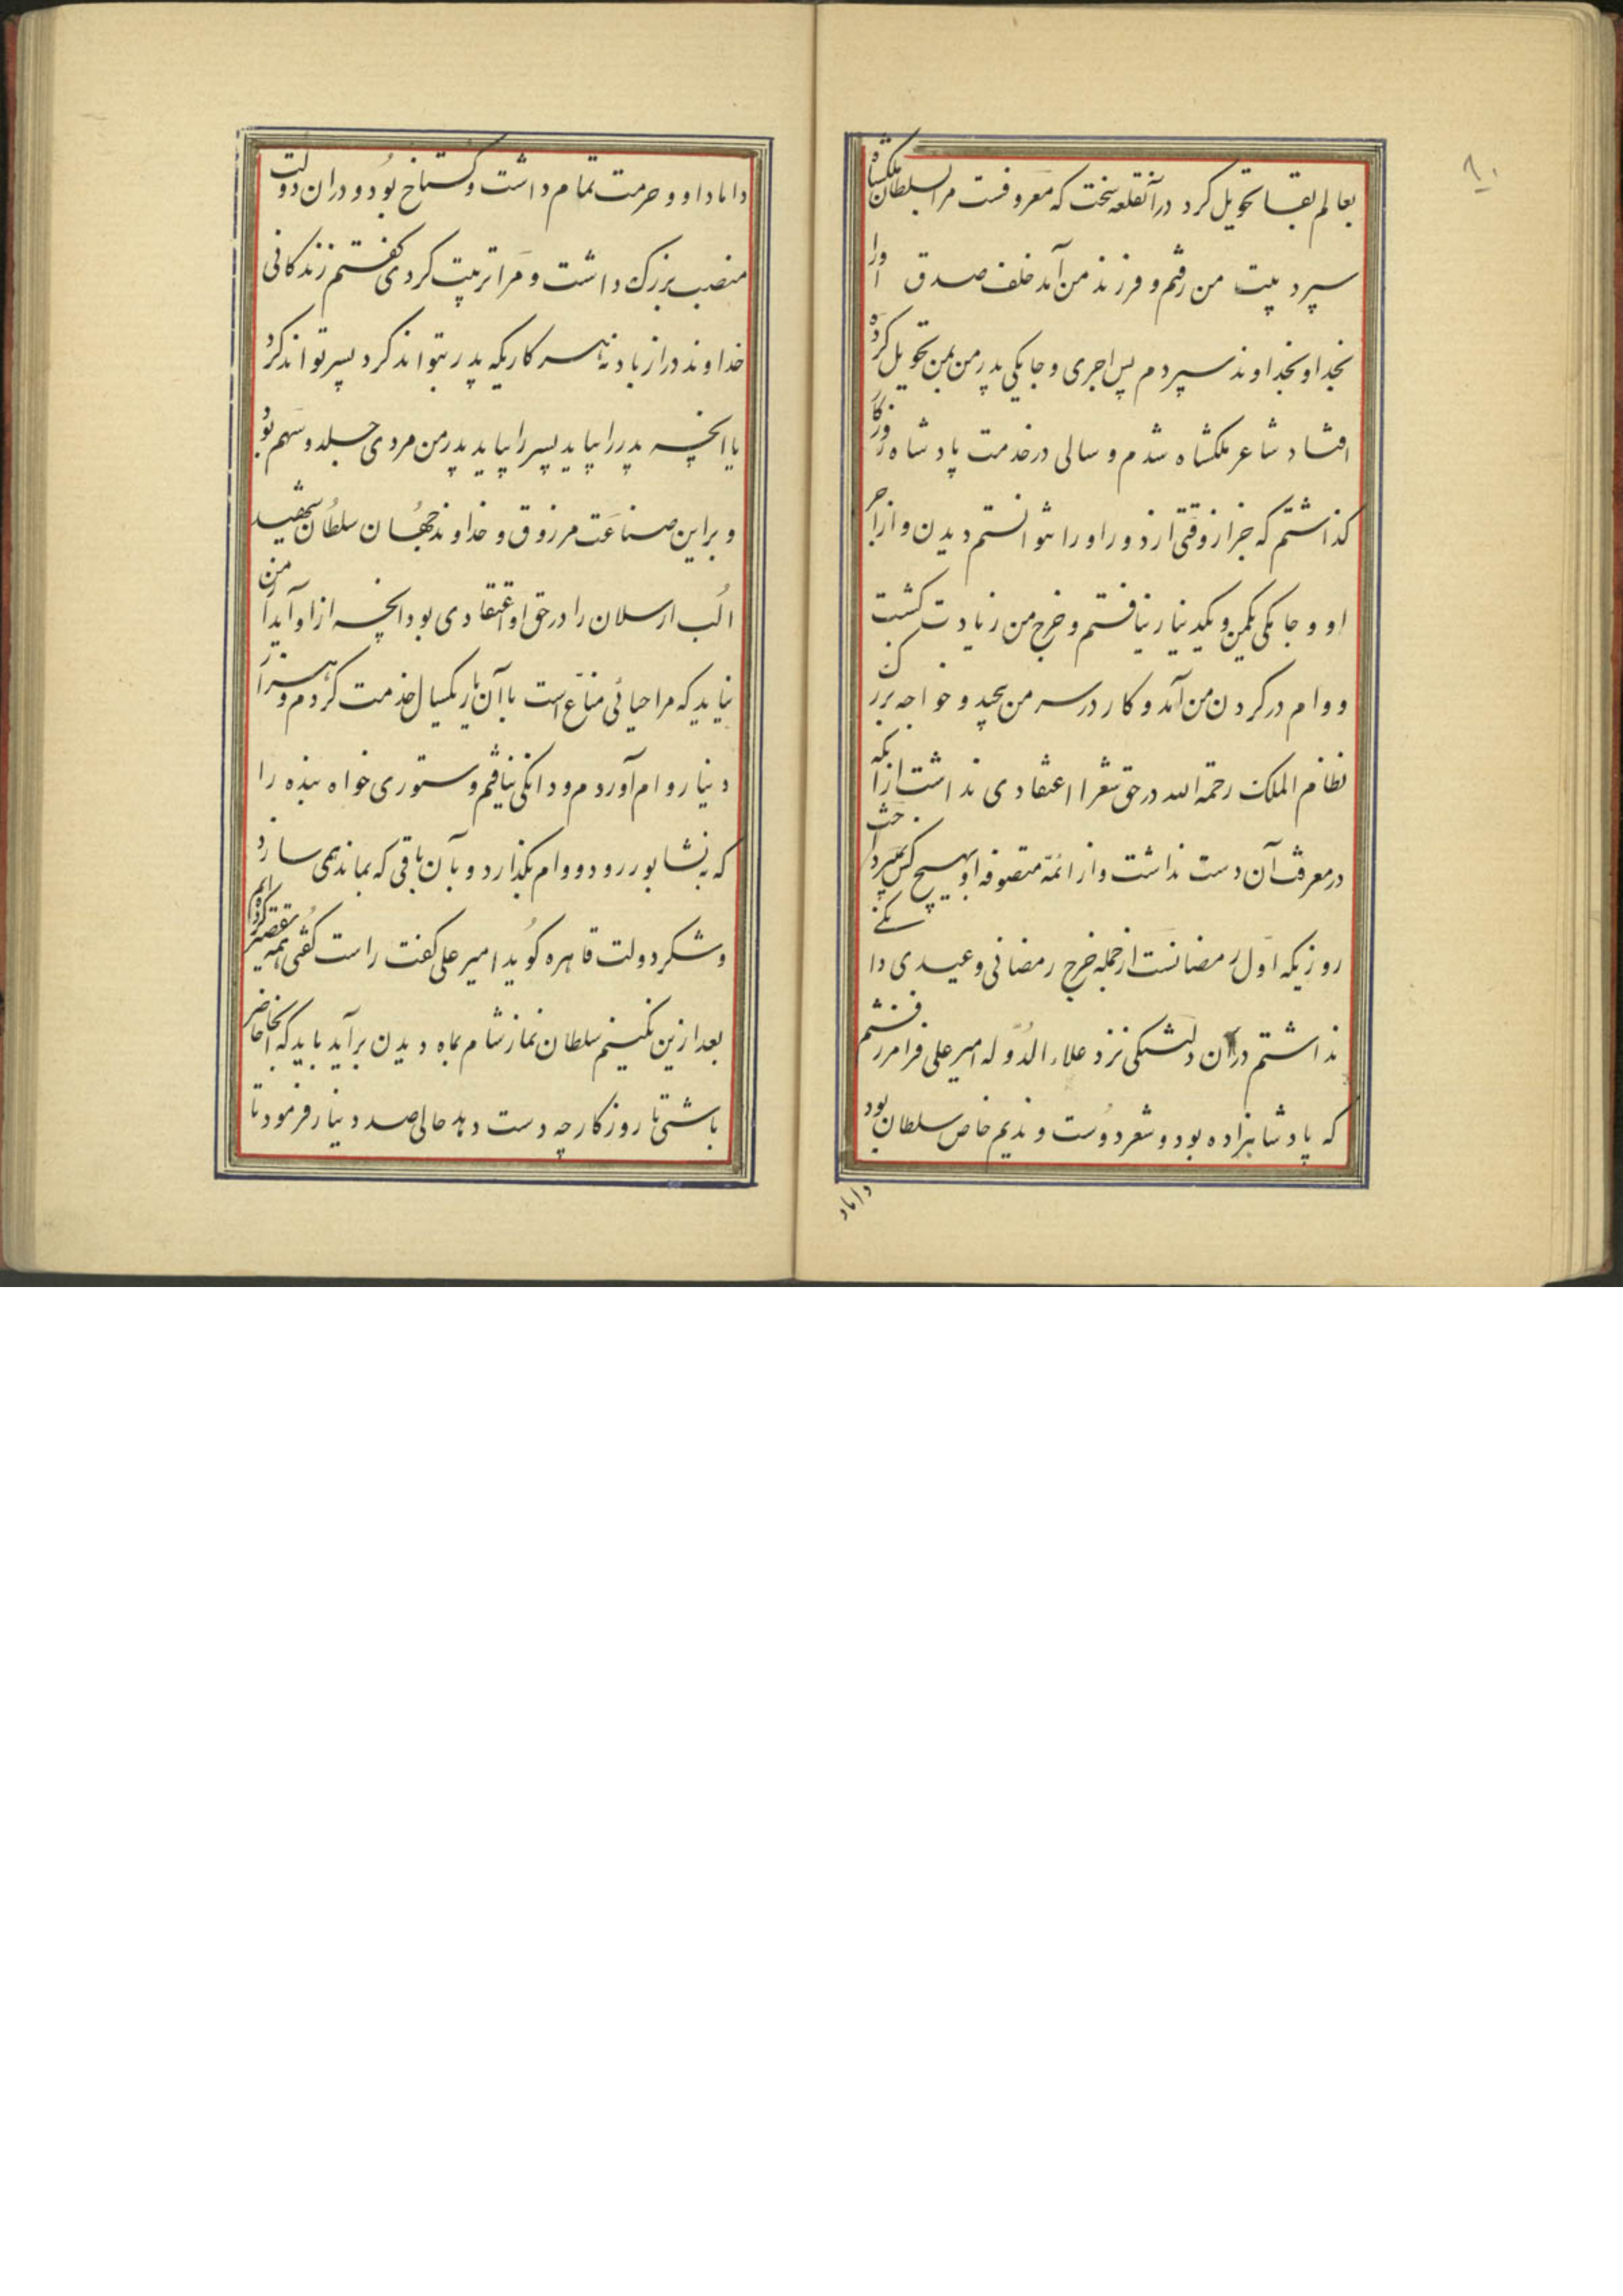 ۸۰
بعالم بقا تحویل کرد در آنقلعه سخت که معروفست مرا بسلطان ملکشاه
سپرد بیت من رفتم و فرزند من آمد خلف صدق اورا
بخدا و بخداوند سپردم پس اجری و جامگی پدر من بمن تحویل کرده
افتاد شاعر ملکشاه شدم و سالی در خدمت پادشاه روزکار
کذاشتم که جز از وقتی از دور او را نتوانستم دیدن و از اجر
او و جامگی یکمن و یکدینار نیافتم و خرج من زیادت کشت
و وام در کردن من آمد و کار در سر من پیچید و خواجه بزرک
نظام الملک رحمة الله در حق شعرا اعتقادی نداشت از آنکه
در معرفت آن دست نداشت و از ائمه متصوفه او بهیچ کس نمیپرداخت
روزیکه اول رمضانست از جمله خرج رمضانی و عیدی دانکی
نداشتم در آن دلتنکی نزد علاء الدوله امیر علی فرامرز رفتم
که پادشاهزاده بود و شعر دوست و ندیم خاص سلطان بود
داماد
داماد او و حرمت تمام داشت و کستاخ بود و دران دولت
منصب بزرک داشت و مرا تربیت کردی کفتم زندکانی
خداوند دراز باد نه هر کاریکه پدر بتواند کرد پسر تواند کرد
یا انچه پدر را بیاید پسر را بیاید پدر من مردی جلد و سهم بود
و براین صناعت مرزوق و خداوند جهان سلطان شهید
الب ارسلان را در حق او اعتقادی بود انچه از او آید از من
نیاید که مرا حیائی مناع است با آن یار یکسال خدمت کردم و هزار
دینار وام آوردم و دانکی نیافتم دستوری خواه بنده را
که به نشابور رود و وام بکذارد و بآن باقی که بماند همی سازد
و شکر دولت قاهره کوید امیر علی کفت راست کفتی همه تقصیر کرده‌ایم
بعد ازین نکنیم سلطان نماز شام بماه دیدن برآید باید که آنجا حاضر
باشی تا روزکار چه دست دهد حالی صد دینار فرمود تا